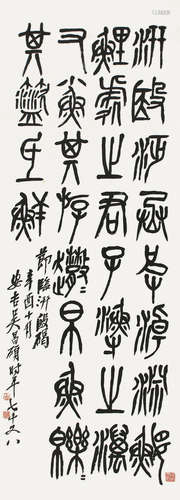 汧殹沔丞皮淖淵鰋
鯉處之君子漁之澫
又小魚其斿趰帛魚皪
其盜氐鮮
節臨汧殹碣
辛酉十月
安吉吳昌碩時年七十又八